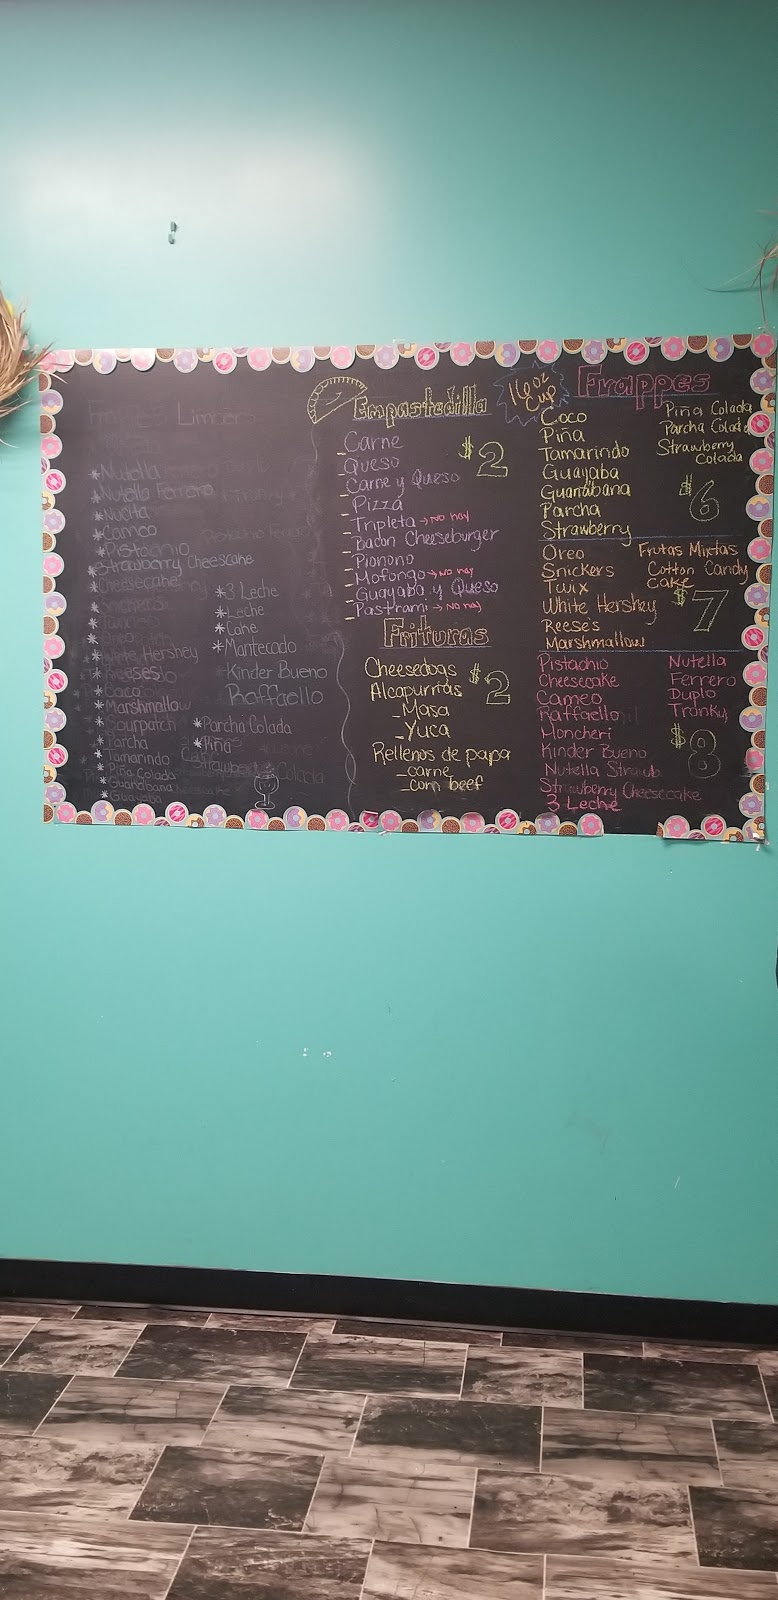 Limbers
*Nutella
*Nutella Ferrero
*Nucita
*Cameo
*Pistachio
*Strawberry Cheesecake
*Cheesecake
*White Hershey
*Reeses
*Coco
*Marshmallow
*Sourpatch
*Parcha
*Tamarindo
*Piña Colada
*Guanabana
*Guayaba
*3 Leche
*Leche
*Cake
*Mantecado
Kinder Bueno
Raffaello
*Parcha Colada
*Piña
Empastedilla
$2
- Carne
- Queso
- Carne y Queso
- Pizza
- Tripleta → No hay
- Bacon Cheeseburger
- Pionono
- Mofongo → No hay
- Guayaba y Queso
- Pastrami → No hay
Frituras
$2
Cheesedogs
Alcapurrias
- Masa
- Yuca
Rellenos de papa
- carne
- corn beef
16 oz
Cup
Frappes
Coco
Piña
Tamarindo
Guayaba
Guanábana
Parcha
Strawberry
Piña Colada
Parcha Colada
Strawberry
Colada
$6
Oreo
Snickers
Twix
White Hershey
Reese's
Marshmallow
Frutas Mixtas
Cotton Candy
Cake
$7
Pistachio
Cheesecake
Cameo
Raffaello
Moncheri
Kinder Bueno
Nutella Strawb
Strawberry Cheesecake
3 Leche
Nutella
Ferrero
Duplo
Tronky
$8